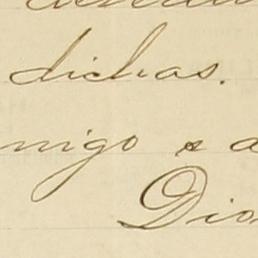 dichas.
migo s a
Dio